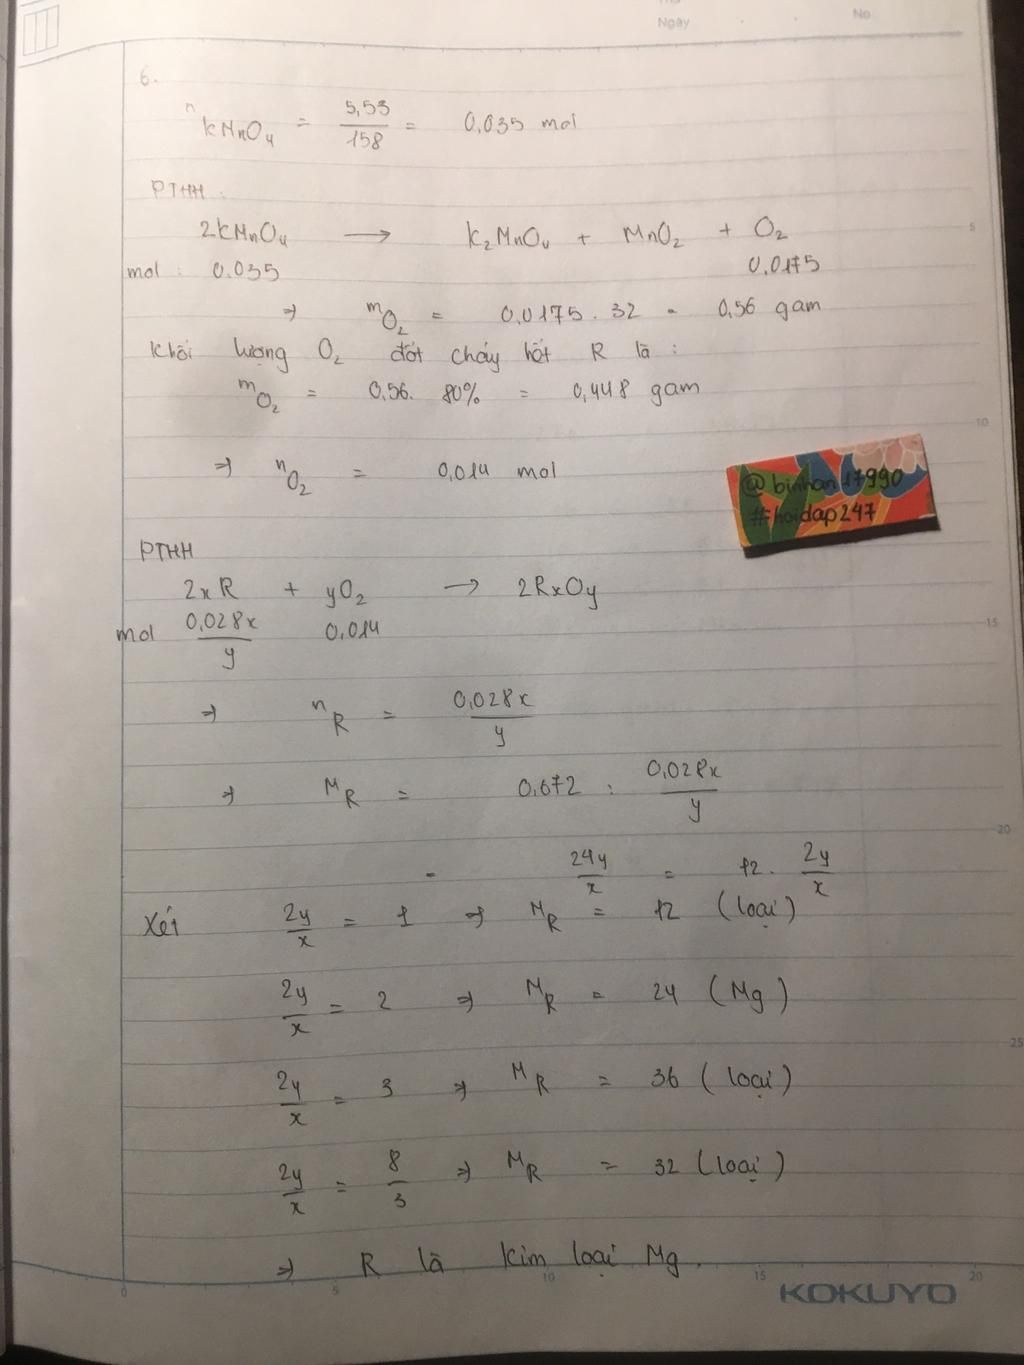 Ngày
No
6.
nKMnO4 = 5,53/158 = 0,035 mol
PTHH:
2KMnO4 → K2MnO4 + MnO2 + O2
mol: 0.035 0,0175
⇒ mO2 = 0,0175.32 = 0,56 gam
Khối lượng O2 đốt cháy hết R là:
mO2 = 0,56. 80% = 0,448 gam
⇒ nO2 = 0,014 mol
@binhan17990
#hoidap247
PTHH
2xR + yO2 → 2RxOy
mol 0,028x/y 0,014
⇒ nR = 0,028x/y
⇒ MR = 0,672 : 0,028x/y
= 24y/x = 12. 2y/x
Xét 2y/x = 1 ⇒ MR = 12 (loại)
2y/x = 2 ⇒ MR = 24 (Mg)
2y/x = 3 ⇒ MR = 36 (loại)
2y/x = 8/3 ⇒ MR = 32 (loại)
⇒ R là kim loại Mg.
5
10
15
20
25
0 5 10 15 20
KOKUYO